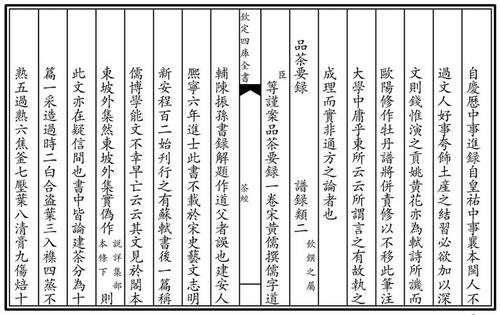 自慶歷中事進録自皇祐中事襄本閩人不
過文人好事夸飾土産之結習必欲加以深
文則錢惟演之貢姚黄花亦為軾詩所譏而
歐陽修作牡丹譜將併責修以不移此筆注
大學中庸乎東所云云所謂言之有故執之
成理而實非通方之論者也
品茶要録 譜録類二 飲饌之屬
臣等謹案品茶要録一卷宋黄儒撰儒字道
欽定四庫全書 茶經
輔陳振孫書録解題作道父者誤也建安人
熙寧六年進士此書不載於宋史藝文志明
新安程百二始刊行之有蘇軾書後一篇稱
儒博學能文不幸早亡云云其文見於閣本
東坡外集然東坡外集實偽作 説詳集部本條下 則
此文亦在疑信間也書中皆論建茶分為十
篇一采造過時二白合盗葉三入雜四蒸不
熟五過熟六焦釜七壓葉八清膏九傷焙十